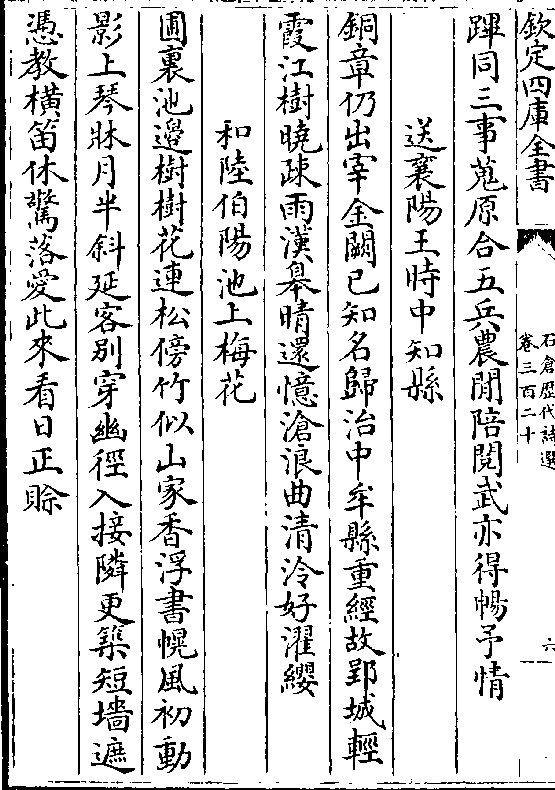 欽定四庫全書
石倉歷代詩選
卷三百二十
六
蹕同三事蒐原合五兵農閒陪閱武亦得暢予情
送襄陽王時中知縣
銅章仍出宰金闕已知名歸治中牟縣重經故郢城輕
霞江樹曉疎雨漢臯晴還憶滄浪曲清泠好濯纓
和陸伯陽池上梅花
圃裏池邊樹樹花連松傍竹似山家香浮書幌風初動
影上琴牀月半斜延客別穿幽徑入接隣更築短墻遮
憑教橫笛休驚落愛此來看日正賒